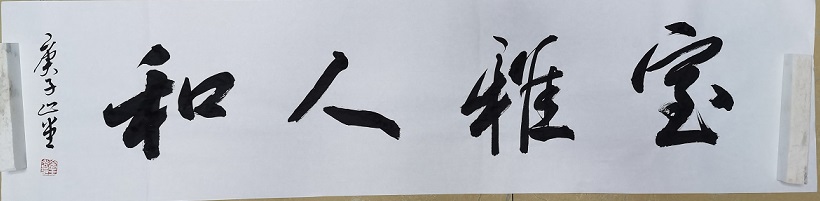 室雅人和
庚子